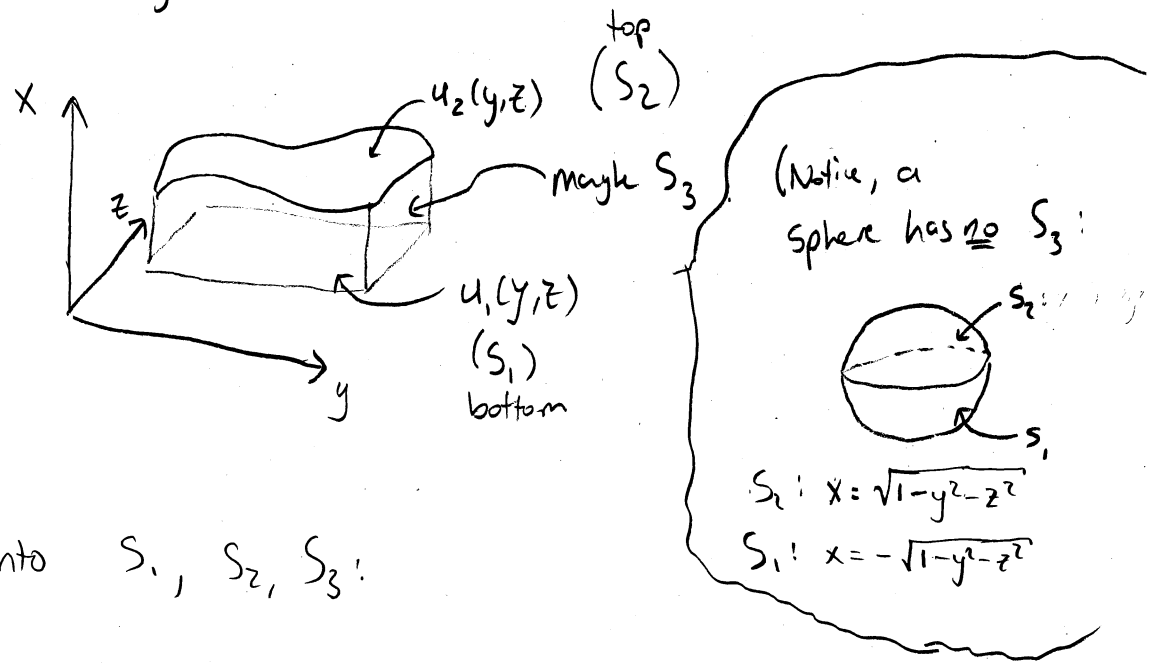 top
(S₂)
x
u₂(y,z)
maybe S₃
z
u₁(y,z)
(S₁)
bottom
y
(Notice, a
sphere has no S₃:
S₂:
S₁
S₂: x = √1-y²-z²
S₁: x = -√1-y²-z²
nto S₁, S₂, S₃: